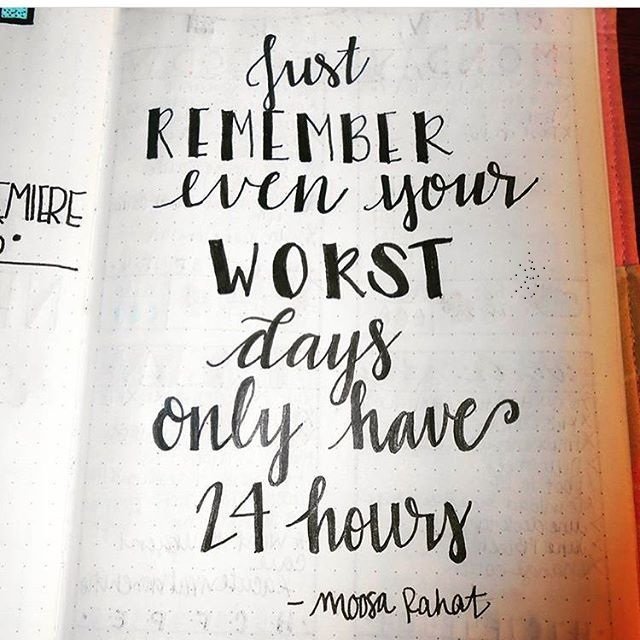 Just
REMEMBER
even your
WORST
days
only have
24 hours
- moosa Rahat
EMIERE